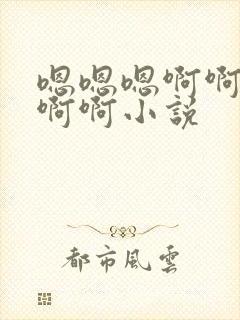 嗯嗯嗯啊啊
啊啊小説
都市風雲